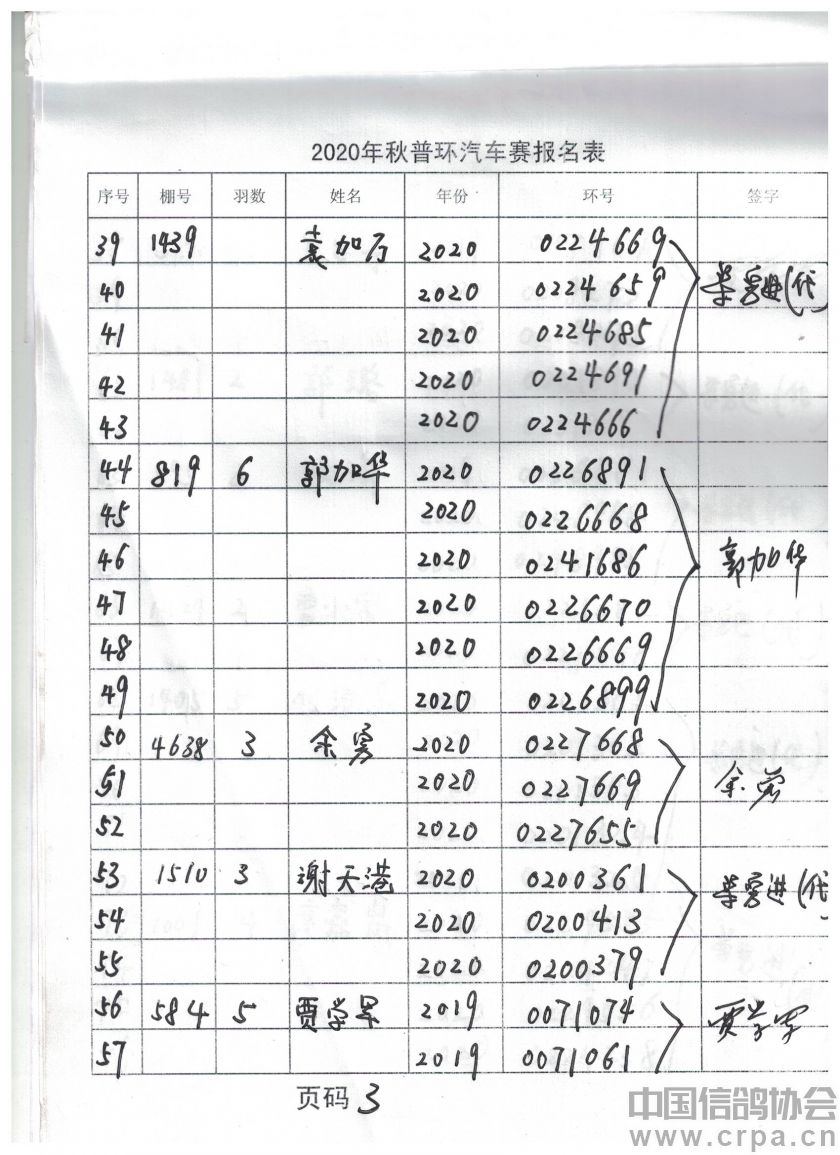 2020年秋普环汽车赛报名表
序号 棚号 羽数 姓名 年份 环号 签字
39 1439 袁加万 2020 0224669
40 2020 0224659 (代)
41 2020 0224685
42 2020 0224691
43 2020 0224666
44 819 6 郭加华 2020 0226891
45 2020 0226668
46 2020 0241686 郭加华
47 2020 0226670
48 2020 0226669
49 2020 0226899
50 4638 3 余 2020 0227668
51 2020 0227669 余
52 2020 0227655
53 1510 3 谢天港 2020 0200361 进(代)
54 2020 0200413
55 2020 0200379
56 584 5 贾学军 2019 0071074 贾学军
57 2019 0071061
页码 3
中国信鸽协会
www.crpa.cn